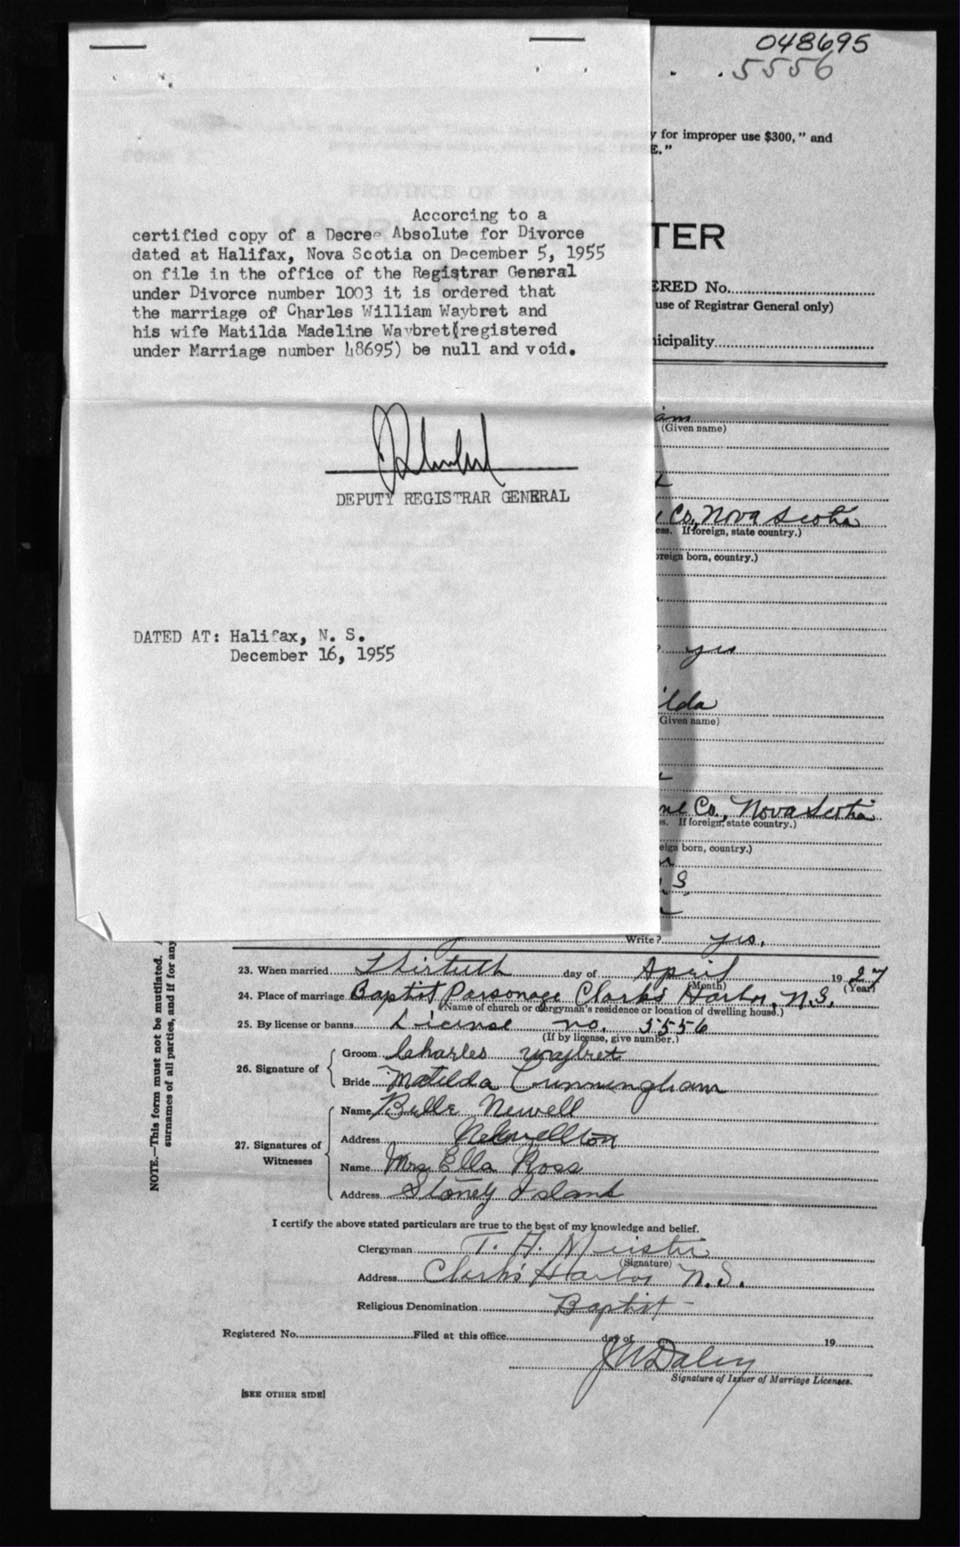 048695
5556
y for improper use $300," and
E."
TER
ERED No.
use of Registrar General only)
icipality
Accorcing to a
certified copy of a Decree Absolute for Divorce
dated at Halifax, Nova Scotia on December 5, 1955
on file in the office of the Registrar General
under Divorce number 1003 it is ordered that
the marriage of Charles William Waybret and
his wife Matilda Madeline Waybret(registered
under Marriage number 48695) be null and void.
DEPUTY REGISTRAR GENERAL
DATED AT: Halifax, N. S.
December 16, 1955
iam
(Given name)
Co, Nova Scotia
ess. If foreign, state country.)
oreign born, country.)
yes
ilda
Given name)
ne Co., Nova Scotia
s. If foreign, state country.)
eign born, country.)
S.
Write? yes.
23. When married Thirtieth day of April 1927
(Month) (Year)
24. Place of marriage Baptist Parsonage Clark's Harbor, N.S.
(Name of church or clergyman's residence or location of dwelling house.)
25. By license or banns License no. 5556
(If by license, give number.)
26. Signature of
Groom Charles Waybret
Bride Matilda Cunningham
27. Signatures of Witnesses
Name Belle Newell
Address Newellton
Name Mrs Ella Ross
Address Stoney Island
I certify the above stated particulars are true to the best of my knowledge and belief.
Clergyman T. H. Meister
(Signature)
Address Clark's Harbor N.S.
Religious Denomination Baptist
Registered No. Filed at this office day of 19
J W Daley
Signature of Issuer of Marriage Licenses.
[SEE OTHER SIDE]
NOTE.—This form must not be mutilated.
surnames of all parties, and if for any